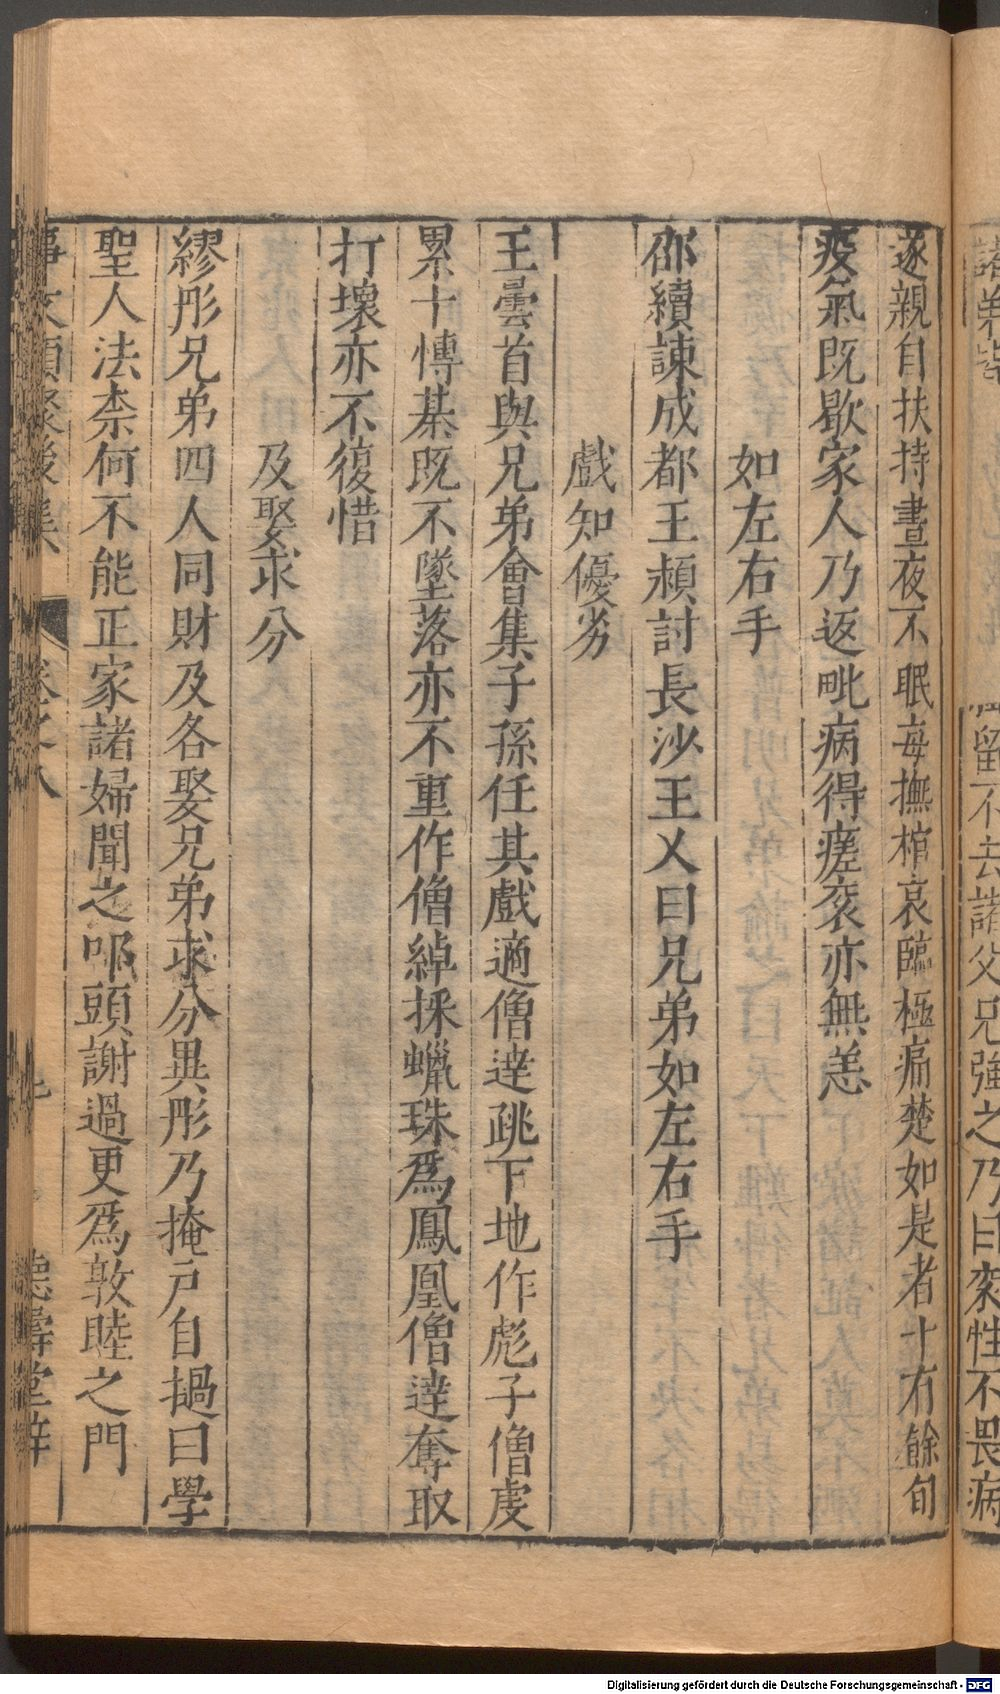 留不去諸父兄強之乃曰衮性不畏病
遂親自扶持晝夜不眠毎撫棺哀臨極痛楚如是者十有餘旬
疫氣既歇家人乃返毗病得瘥衮亦無恙
如左右手
邵續諫成都王頴討長沙王乂曰兄弟如左右手
戲知優劣
王曇首與兄弟會集子孫任其戲適僧達跳下地作彪子僧虔
累十博棊既不墜落亦不重作僧綽採蠟珠爲鳳凰僧達奪取
打壞亦不復惜
及娶求分
繆肜兄弟四人同財及各娶兄弟求分異肜乃掩戸自撾曰學
聖人法柰何不能正家諸婦聞之叩頭謝過更爲敦睦之門
事文類聚後集 卷之八 德壽堂梓
Digitalisierung gefördert durch die Deutsche Forschungsgemeinschaft - DFG